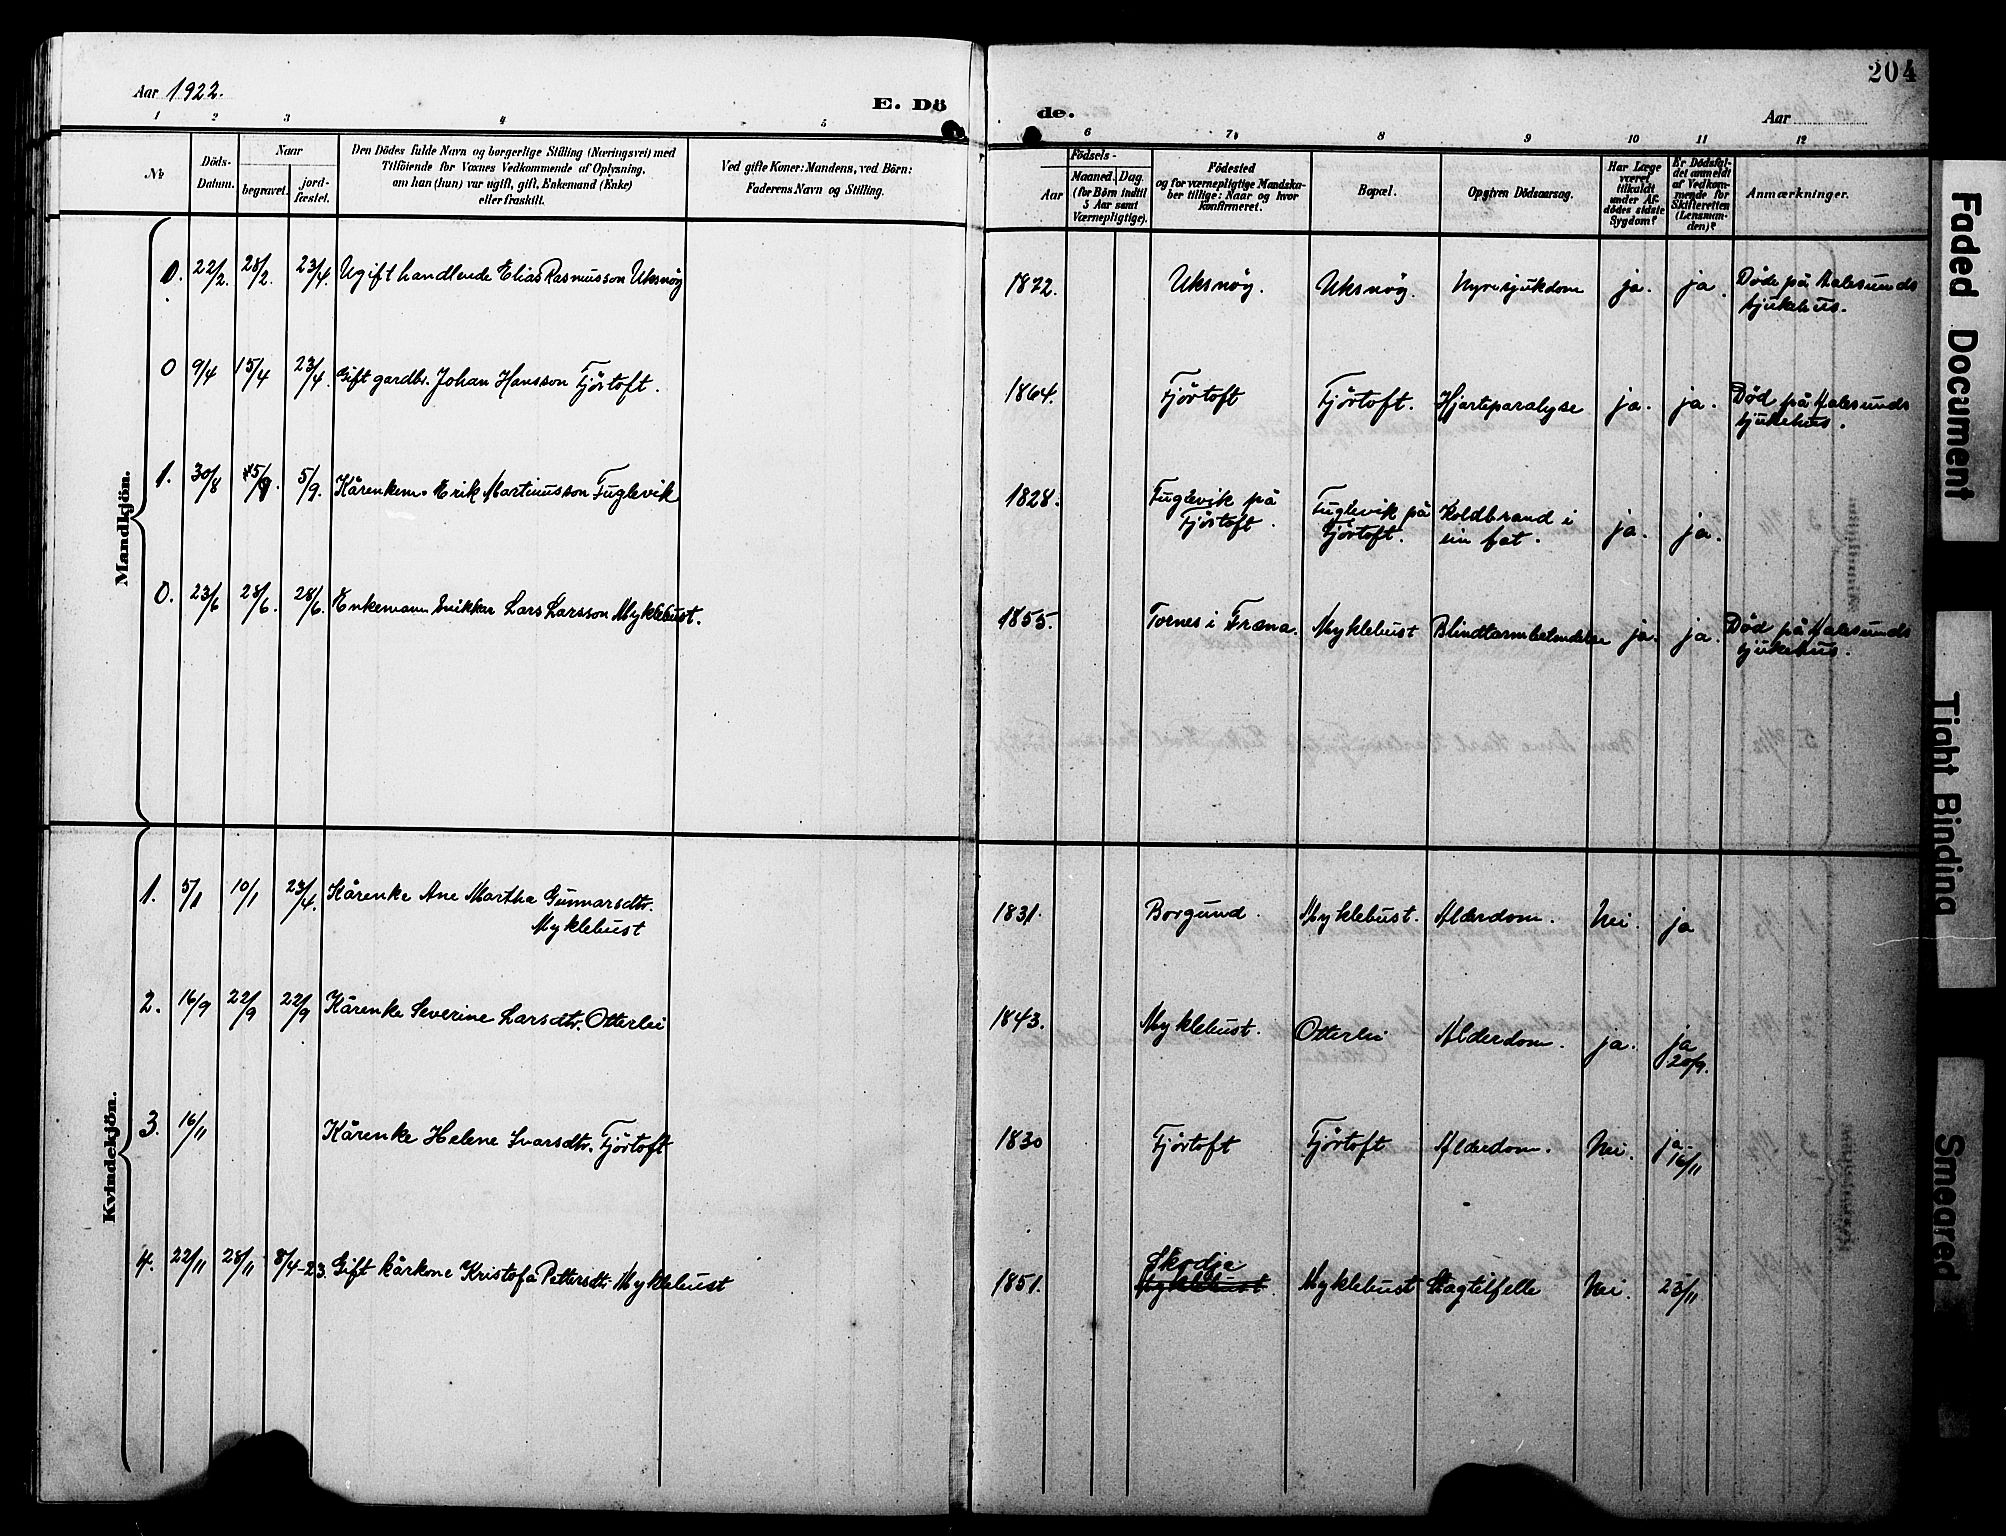 Aar 1922.
E. Dö
de.
Aar
204
1 2 3 4 5
6 7 8 9 10 11 12
No
Döds-
Datum.
Naar
begravet.
jord-
fæstet.
Den Dödes fulde Navn og borgerlige Stilling (Næringsvei) med
Tilföiende for Voxnes Vedkommende af Oplysning,
om han (hun) var ugift, gift, Enkemand (Enke)
eller fraskilt.
Ved gifte Koner: Mandens, ved Börn:
Faderens Navn og Stilling.
Födsels-
Aar
Maaned. Dag.
(for Börn indtil
5 Aar samt
Værnepligtige).
Födested
og for værnepligtige Mandska-
ber tillige: Naar og hvor
konfirmeret.
Bopæl.
Opgiven Dödsaarsag.
Har Læge
været
tilkaldt
under Af-
dödes sidste
Sygdom?
Er Dödsfal-
det anmeldt
af Vedkom-
mende for
Skifteretten
(Lensman-
den)?
Anmærkninger.
Mandkjön.
0. 22/2. 28/2. 23/4. Ugift handlende Elias Rasmusson Uksnöy
1872. Uksnöy. Uksnöy. Nyresjukdom ja. ja. Døde på Aalesunds
sjukehus.
0 9/4 15/4 23/4. Gift gardbr. Johan Hansson Fjørtoft.
1864. Fjørtoft Fjørtoft. Hjarteparalyse ja. ja. Død på Aalesunds
sjukehus.
1. 30/8 5/9. 5/9. Kårenkem. Erik Martinusson Fuglevik
1828. Fuglevik på
Fjørtoft. Fuglevik på
Fjørtoft. Koldbrand i
ein fot. ja. ja.
0. 23/6 28/6. 28/6. Enkemann snikkar Lars Larsson Myklebust.
1855. Tornes i Fræna. Myklebust Blindtarmbetendelse ja. ja. Død på Aalesunds
sjukehus.
Kvindekjön.
1. 5/1 10/1 23/4. Kårenke Ane Martha Gunnarsdtr.
Myklebust
1831. Borgund. Myklebust. Alderdom. Nei. ja
2. 16/9 22/9 22/9 Kårenke Severine Larsdtr. Otterlei
1843. Myklebust. Otterlei Alderdom. ja. ja
20/9.
3. 16/11 Kårenke Helene Ivarsdtr. Fjørtoft
1830 Fjørtoft Fjørtoft Alderdom. Nei. ja
16/11
4. 22/11 28/11 8/4-23. Gift kårkone Kristofa Pettersdtr. Myklebust
Skodje
1851. Myklebust. Myklebust Slagtilfelle Nei. 23/11
Faded Document
Tight Binding
Smeared